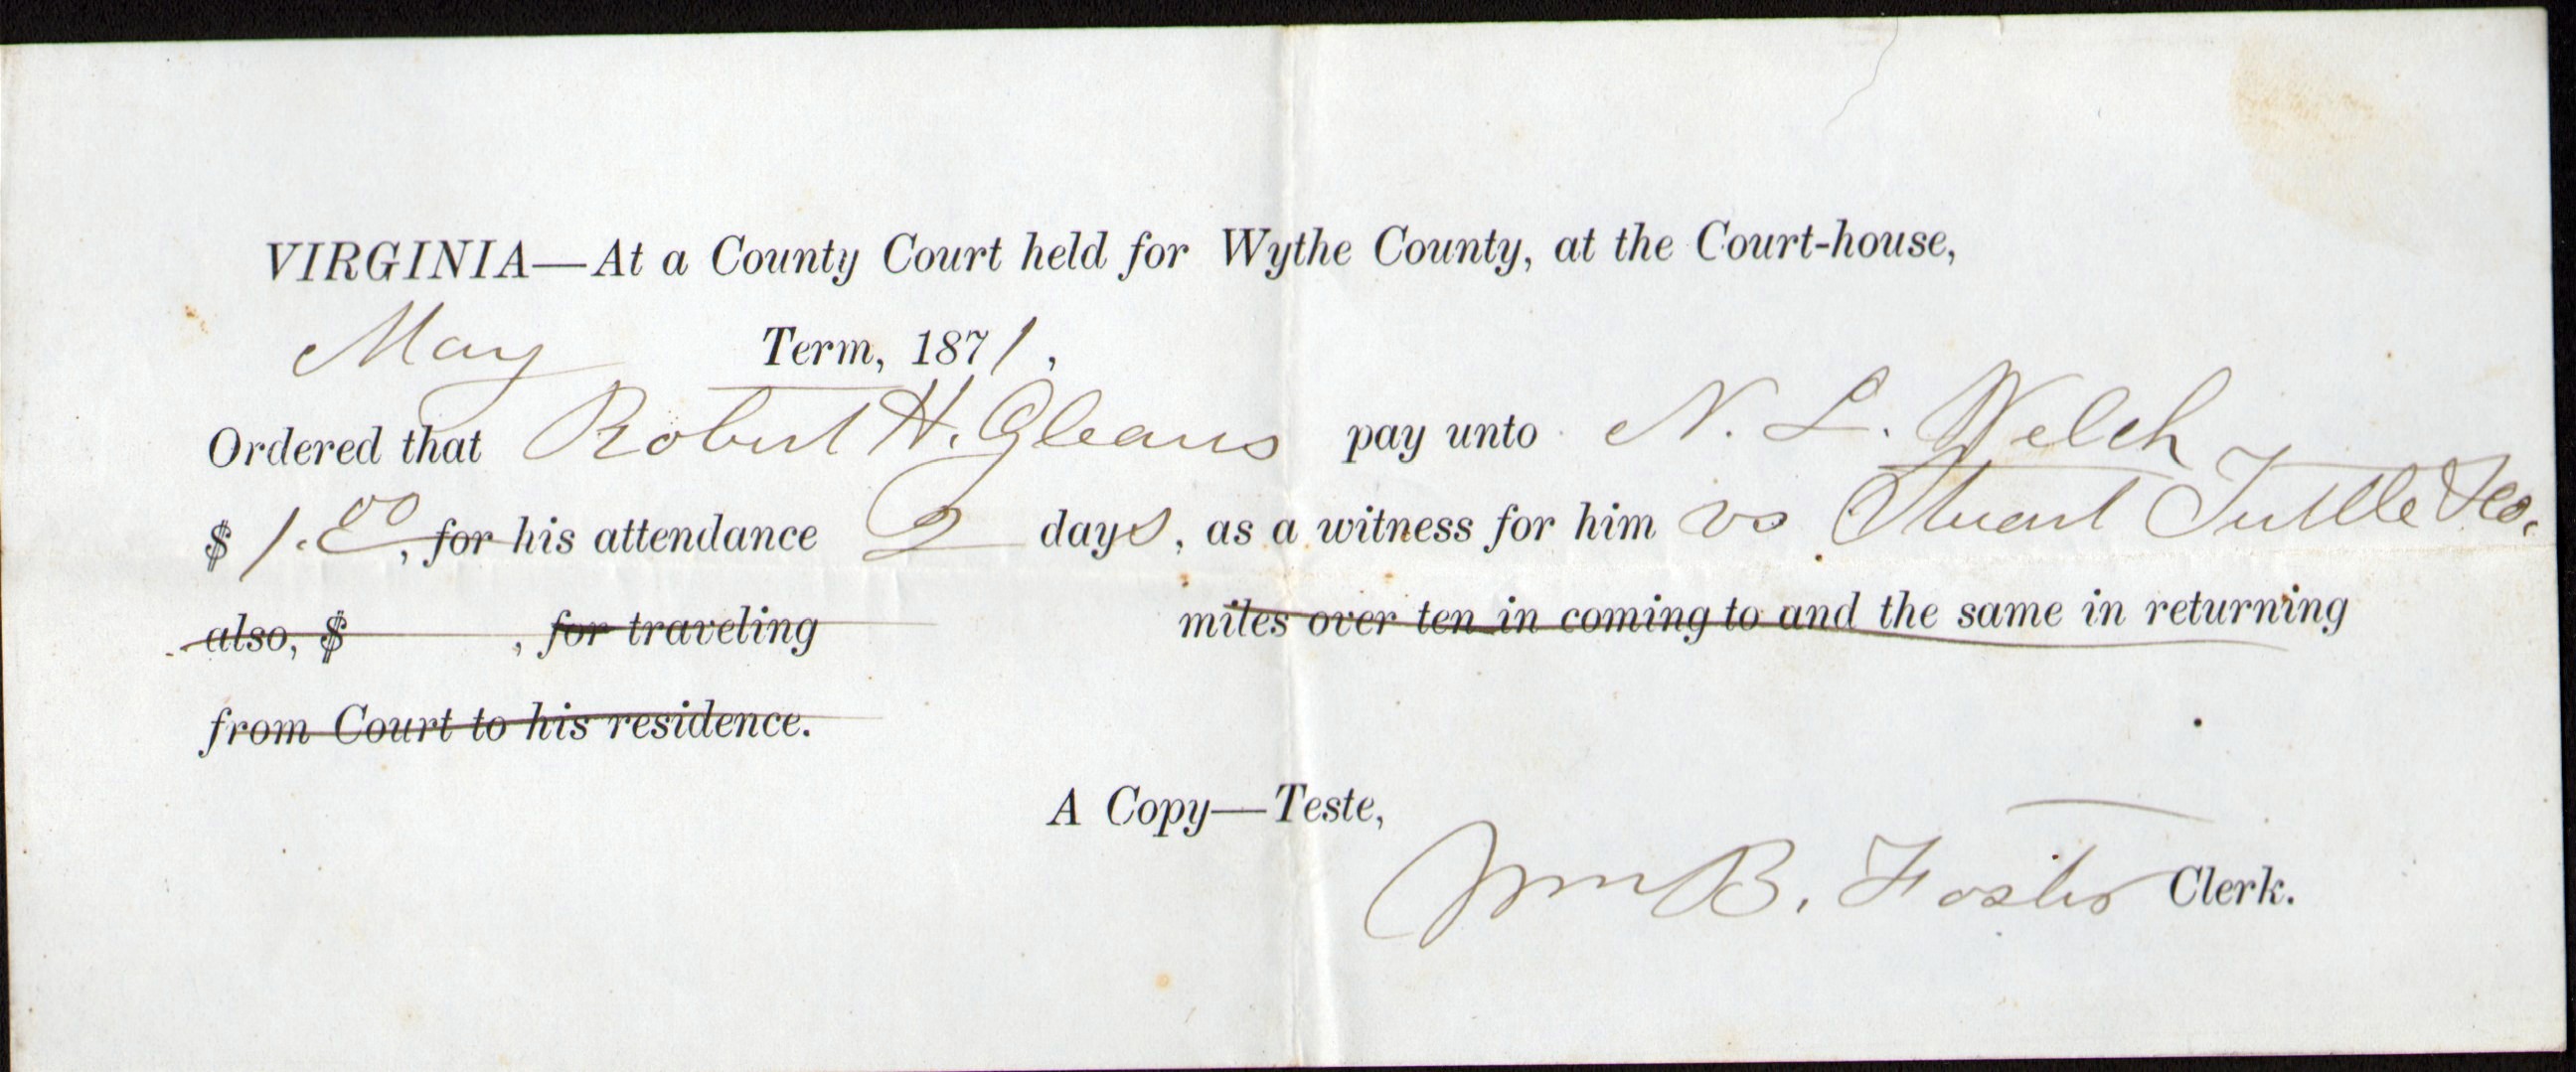 VIRGINIA—At a County Court held for Wythe County, at the Court-house,
May Term, 1871,
Ordered that Robert H. Gleaves pay unto N. L. Welch
$1.00, for his attendance 2 days, as a witness for him vs Stuart Tuttle & Co.
also, $ , for traveling miles over ten in coming to and the same in returning
from Court to his residence.
A Copy—Teste,
Wm B. Foster Clerk.